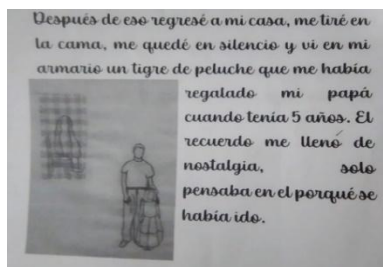 Después de eso regresé a mi casa, me tiré en
la cama, me quedé en silencio y vi en mi
armario un tigre de peluche que me había
regalado mi papá
cuando tenía 5 años. El
recuerdo me llenó de
nostalgia, solo
pensaba en el porqué se
había ido.